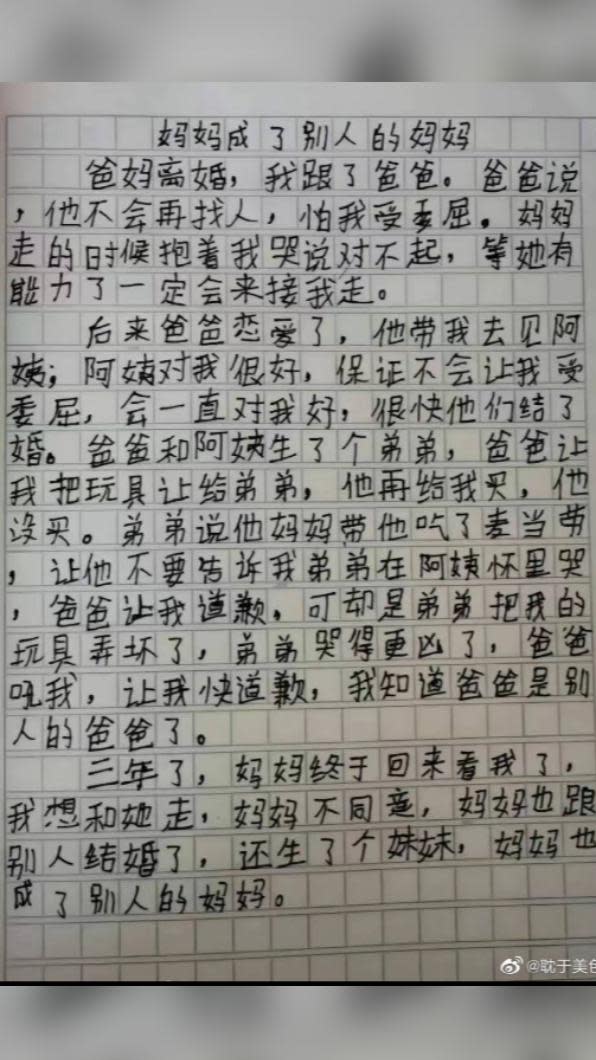 妈妈成了别人的妈妈
爸妈离婚，我跟了爸爸。爸爸说
，他不会再找人，怕我受委屈。妈妈
走的时候抱着我哭说对不起，等她有
能力了一定会来接我走。
后来爸爸恋爱了，他带我去见阿
姨；阿姨对我很好，保证不会让我受
委屈，会一直对我好，很快他们结了
婚。爸爸和阿姨生了个弟弟，爸爸让
我把玩具让给弟弟，他再给我买，他
没买。弟弟说他妈妈带他吃了麦当劳
，让他不要告诉我弟弟在阿姨怀里哭
，爸爸让我道歉。可却是弟弟把我的
玩具弄坏了，弟弟哭得更凶了，爸爸
吼我，让我快道歉，我知道爸爸是别
人的爸爸了。
三年了，妈妈终于回来看我了，
我想和她走，妈妈不同意，妈妈也跟
别人结婚了，还生了个妹妹，妈妈也
成了别人的妈妈。
@耽于美色